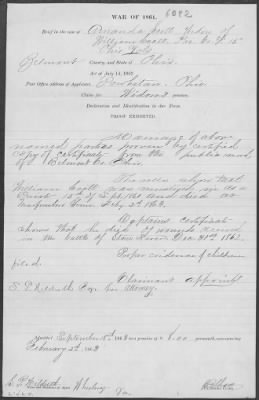 WAR OF 1861.
6092
Brief in the case of Amanda Scott, Widow of
William Scott, Pri. Co. F. 15
Ohio Vols
Belmont County, and State of Ohio.
Act of July 14, 1862.
Post Office Address of Applicant: Ohio
Claim for Widows pension.
Declaration and Identification in due Form.
PROOF EXHIBITED:
Marriage of above
named parties proven by certified
copy of certificate from the public record
of Belmont Co. Ohio.
The rolls show that
William Scott was enrolled as a
Private 15th of Sept. 1861 and died at
Murfreesboro Tenn. Feb. 2d 1863.
Captains certificate
shows that he died of wounds received
in the battle of Stone River Dec 31st 1862.
Proper evidence of children
filed.
Claimant appoints
S. P. Hildreth Esq. her attorney.
Admitted September 1863 8.00 per month, commencing
February 2d 1863
S. P. Hildreth
Wheeling
Va.